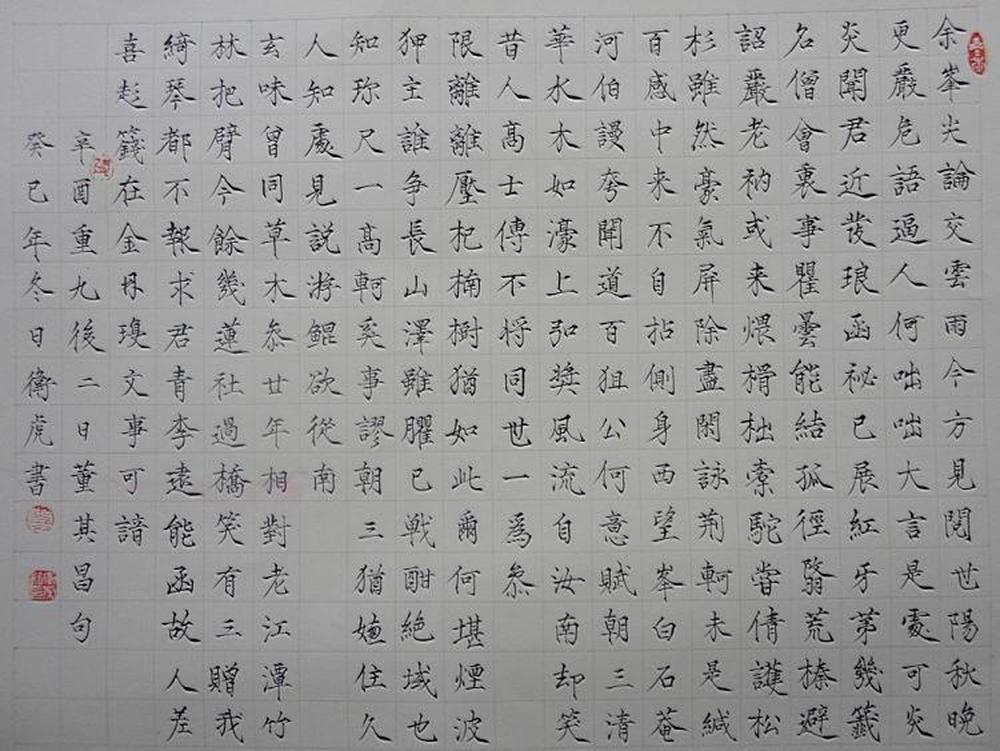 余峯尖論交雲雨今方見閱世陽秋晚
更嚴危語逼人何咄咄大言是處可炎
炎聞君近發琅函祕已展紅牙第幾籤
名僧會裏事瞿曇能結孤徑翳荒榛避
詔嚴老衲或来煨榾柮索駝嘗倩護松
杉雖然豪氣屏除盡閑詠荆軻未是緘
百感中来不自拈側身西望峯白石菴
河伯謾夸聞道百狙公何意賦朝三清
華水木如濠上弘奬風流自汝南却笑
昔人髙士傳不将同世一為叅
限離離壓杞楠樹猶如此爾何堪煙波
狎主誰争長山澤雖臞已戦酣絶域也
知珎尺一髙軻奚事謬朝三猶嫌住久
人知處見説游鯤欲從南
玄味曾同草木叅廿年相對老江潭竹
林把臂今餘幾蓮社過橋笑有三贈我
綺琴都不報求君青李遠能函故人差
喜彭籛在金丹瓊文事可諳
辛酉重九後二日董其昌句
癸巳年冬日衛虎書